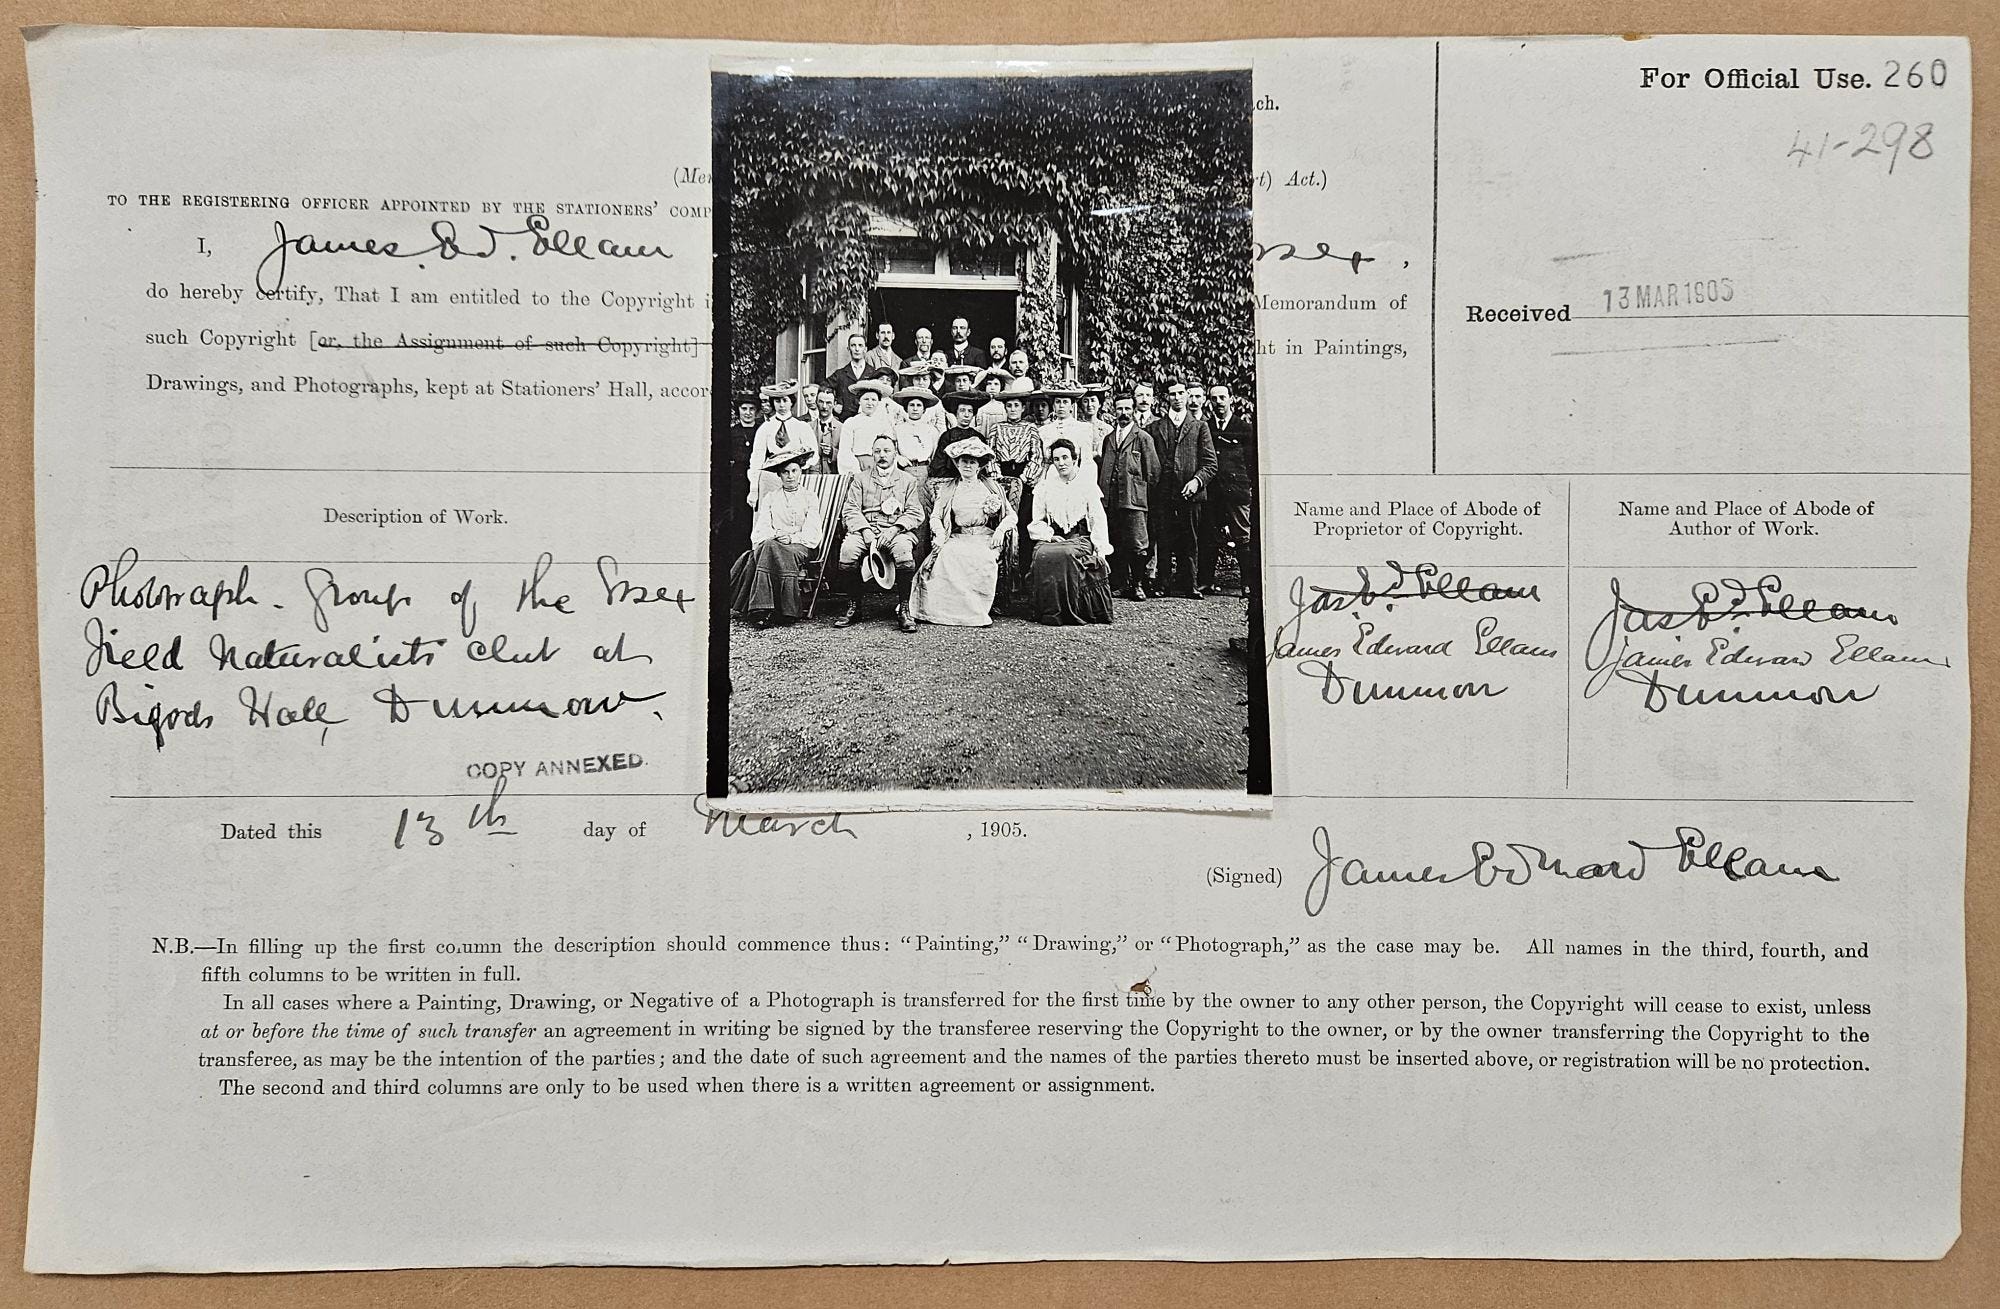 For Official Use. 260
41-298
ch.
(Me t) Act.)
TO THE REGISTERING OFFICER APPOINTED BY THE STATIONERS' COMP
I, James. Ed. Ellam ssex,
do hereby certify, That I am entitled to the Copyright i Memorandum of
such Copyright [or, the Assignment of such Copyright] ht in Paintings,
Drawings, and Photographs, kept at Stationers' Hall, accor
Received 13 MAR 1905
Description of Work.
Name and Place of Abode of
Proprietor of Copyright.
Name and Place of Abode of
Author of Work.
Photograph - Group of the Essex
Field Naturalists club at
Bigods Hall, Dunmow.
COPY ANNEXED.
Jas Ed Ellam
James Edward Ellam
Dunmow
Jas Ed Ellam
James Edward Ellam
Dunmow
Dated this 13th day of March, 1905.
(Signed) James Edward Ellam
N.B.—In filling up the first column the description should commence thus: "Painting," "Drawing," or "Photograph," as the case may be. All names in the third, fourth, and
fifth columns to be written in full.
In all cases where a Painting, Drawing, or Negative of a Photograph is transferred for the first time by the owner to any other person, the Copyright will cease to exist, unless
at or before the time of such transfer an agreement in writing be signed by the transferee reserving the Copyright to the owner, or by the owner transferring the Copyright to the
transferee, as may be the intention of the parties; and the date of such agreement and the names of the parties thereto must be inserted above, or registration will be no protection.
The second and third columns are only to be used when there is a written agreement or assignment.